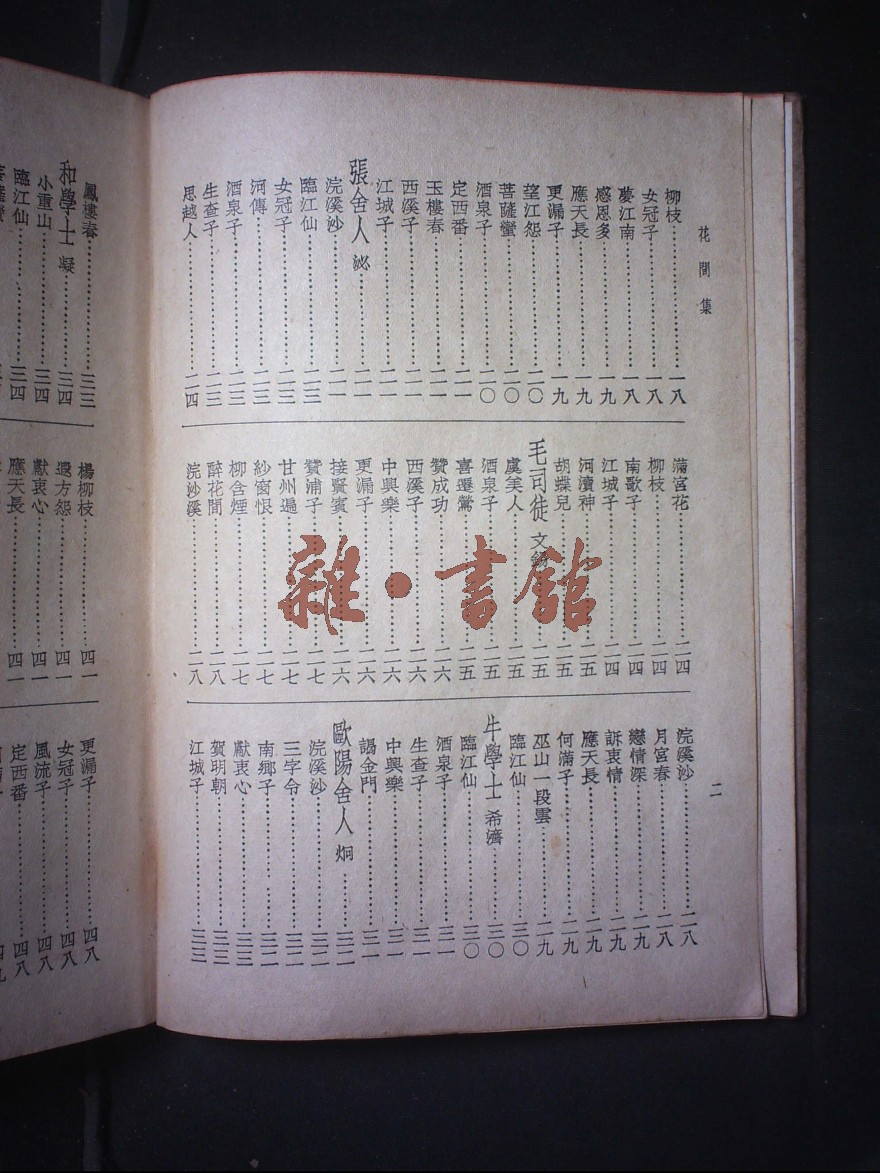 花間集
柳枝⋯⋯一八
女冠子⋯⋯一八
夢江南⋯⋯一八
感恩多⋯⋯一九
應天長⋯⋯一九
更漏子⋯⋯一九
望江怨⋯⋯二〇
菩薩蠻⋯⋯二〇
酒泉子⋯⋯二〇
定西番⋯⋯二一
玉樓春⋯⋯二一
西溪子⋯⋯二一
江城子⋯⋯二一
張舍人 泌⋯⋯二一
浣溪沙⋯⋯二一
臨江仙⋯⋯二三
女冠子⋯⋯二三
河傳⋯⋯二三
酒泉子⋯⋯二三
生查子⋯⋯二三
思越人⋯⋯二四
滿宮花⋯⋯二四
柳枝⋯⋯二四
南歌子⋯⋯二四
江城子⋯⋯二四
河瀆神⋯⋯二五
胡蝶兒⋯⋯二五
毛司徒 文錫⋯⋯二五
虞美人⋯⋯二五
酒泉子⋯⋯二五
喜遷鶯⋯⋯二五
贊成功⋯⋯二六
西溪子⋯⋯二六
中興樂⋯⋯二六
更漏子⋯⋯二六
接賢賓⋯⋯二六
贊浦子⋯⋯二七
甘州遍⋯⋯二七
紗窗恨⋯⋯二七
柳含煙⋯⋯二七
醉花間⋯⋯二八
浣沙溪⋯⋯二八
浣溪沙⋯⋯二八
月宮春⋯⋯二八
戀情深⋯⋯二九
訴衷情⋯⋯二九
應天長⋯⋯二九
何滿子⋯⋯二九
巫山一段雲⋯⋯二九
臨江仙⋯⋯三〇
牛學士 希濟⋯⋯三〇
臨江仙⋯⋯三〇
酒泉子⋯⋯三一
生查子⋯⋯三一
中興樂⋯⋯三一
謁金門⋯⋯三一
歐陽舍人 炯⋯⋯三二
浣溪沙⋯⋯三二
三字令⋯⋯三二
南鄉子⋯⋯三二
獻衷心⋯⋯三三
賀明朝⋯⋯三三
江城子⋯⋯三三
二
鳳樓春⋯⋯三三
和學士 凝⋯⋯三四
小重山⋯⋯三四
臨江仙⋯⋯三四
楊柳枝⋯⋯四一
遐方怨⋯⋯四一
獻衷心⋯⋯四一
應天長⋯⋯四一
更漏子⋯⋯四八
女冠子⋯⋯四八
風流子⋯⋯四八
定西番⋯⋯四八
雜·書館